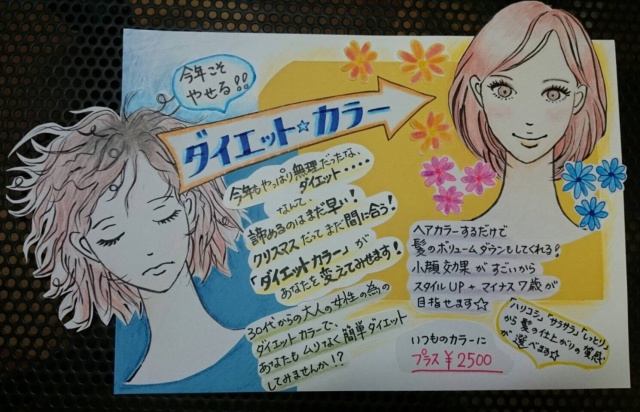 今年こそ
やせる!!
ダイエット☆カラー
今年もやっぱり無理だったな、
ダイエット・・・・
なんて、
諦めるのはまだ早い!
クリスマスだってまだ間に合う!
「ダイエットカラー」が
あなたを変えてみせます!
30代からの大人の女性の為の
ダイエットカラーで、
あなたもムリなく簡単ダイエット
してみませんか!?
ヘアカラーするだけで
髪のボリュームダウンもしてくれる!
小顔効果がすごいから
スタイルUP+マイナス7歳が
目指せます☆
「ハリコシ」「サラサラ」「しっとり」
から髪の仕上がりの質感
が選べます☆
いつものカラーに
プラス¥2500